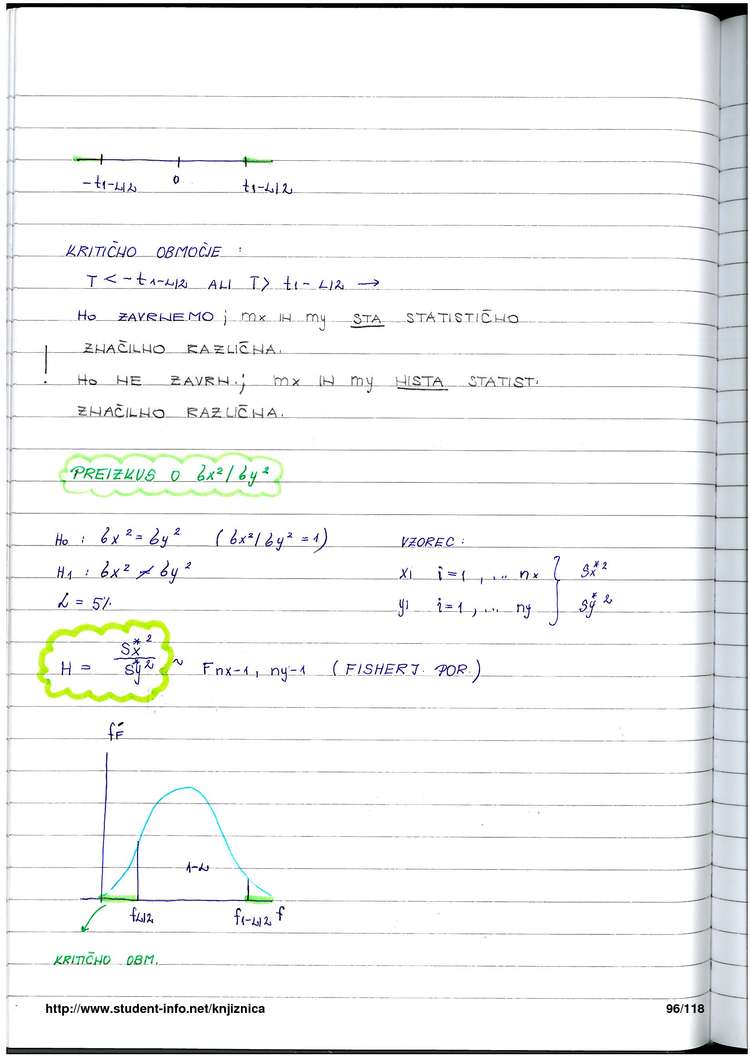 -t1-α/2 0 t1-α/2
KRITIČNO OBMOČJE :
T < -t1-α/2 ALI T > t1-α/2 →
H0 ZAVRNEMO ; mx IN my STA STATISTIČNO
ZNAČILNO RAZLIČNA.
! H0 NE ZAVRN.; mx IN my NISTA STATIST.
ZNAČILNO RAZLIČNA.
PREIZKUS O σx²/σy²
H0 : σx² = σy² (σx²/σy² = 1)
H1 : σx² ≠ σy²
α = 5%
VZOREC :
xi i=1, ... nx } Sx*²
yi i=1, ... ny } Sy*²
H = Sx*²/Sy*² ~ Fnx-1, ny-1 (FISHERJ. POR.)
fF
1-α
fα/2 f1-α/2 f
KRITIČNO OBM.
http://www.student-info.net/knjiznica 96/118